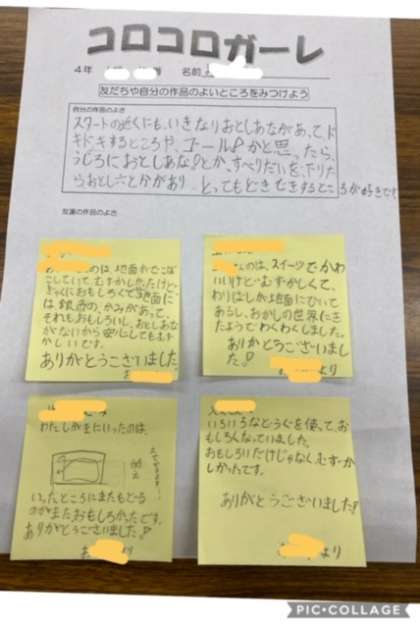 コロコロガーレ
4年 名前
友だちや自分の作品のよいところをみつけよう
自分の作品のよさ
スタートの近くにも、いきなりおとしあながあってド
キドキするところや、ゴール!かと思ったら、
うしろにおとしあな!とか、すべりだいを、下りた
らおとし穴とかがあり、とってもどきどきするところが好きです
友達の作品のよさ
のは地面がでこぼ
こしていて、むずかしかったけど
ぎゃくにおもしろくて地面に
は銀色の、かみがあって、
それもおもしろいし、おとしあな
がないから安心してもむず
かしいです。
ありがとうございました
のは、スイーツでかわ
いいけどむずかしくて、
わりばしが地面にひいて
あるし、おかしの世界にき
たようでわくわくしました。
ありがとうございまし
た!
より
わたしが気にいったのは、
いったところにまたもどる
のがまたおもしろかったです。
ありがとうございました!
より
いろいろなどうぐを使って、お
もしろくなっていました。
おもしろいだけじゃなくむずか
しかったです。
ありがとうございました!
より
PIC•COLLAGE